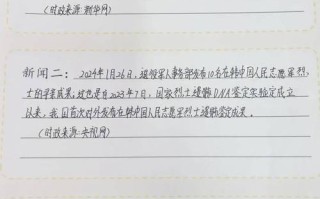 (时政来源:新华网)
新闻二:2024年1月26日,退役军人事务部发布10名在韩中国人民志愿军烈
士的寻亲成果,这也是自2023年7月,国家烈士遗骸DNA鉴定实验室成立
以来,我国首次对外发布在韩中国人民志愿军烈士遗骸鉴定成果。
(时政来源:央视网)